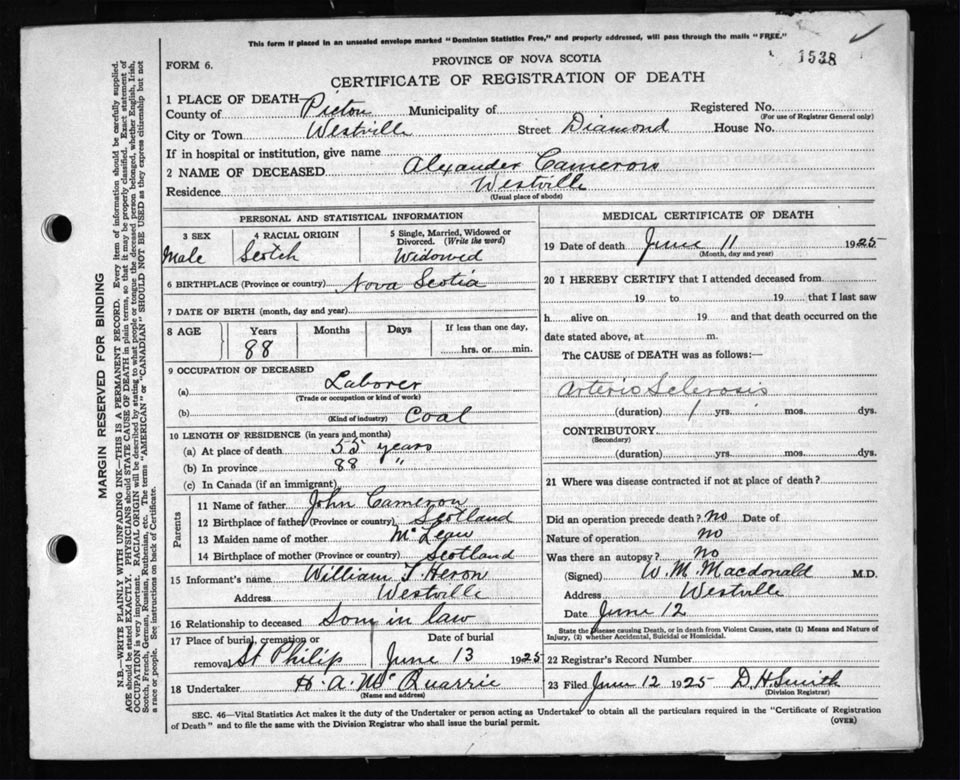 This form if placed in an unsealed envelope marked "Dominion Statistics Free," and properly addressed, will pass through the mails "FREE."
1538
FORM 6.
PROVINCE OF NOVA SCOTIA
CERTIFICATE OF REGISTRATION OF DEATH
1 PLACE OF DEATH
County of Pictou Municipality of Registered No.
(For use of Registrar General only)
City or Town Westville Street Diamond House No.
If in hospital or institution, give name
2 NAME OF DECEASED Alexander Cameron
Residence Westville
(Usual place of abode)
PERSONAL AND STATISTICAL INFORMATION
3 SEX
Male
4 RACIAL ORIGIN
Scotch
5 Single, Married, Widowed or
Divorced. (Write the word)
Widowed
6 BIRTHPLACE (Province or country) Nova Scotia
7 DATE OF BIRTH (month, day and year)
8 AGE Years Months Days If less than one day,
88 hrs. or min.
9 OCCUPATION OF DECEASED
(a) Laborer
(Trade or occupation or kind of work)
(b) Coal
(Kind of industry)
10 LENGTH OF RESIDENCE (in years and months)
(a) At place of death 55 years
(b) In province 88 "
(c) In Canada (if an immigrant)
Parents
11 Name of father John Cameron
12 Birthplace of father (Province or country) Scotland
13 Maiden name of mother McLean
14 Birthplace of mother (Province or country) Scotland
15 Informant's name William T. Heron
Address Westville
16 Relationship to deceased Son in law
17 Place of burial, cremation or
removal St Philip
Date of burial
June 13 1925
18 Undertaker H. A. McQuarrie
(Name and address)
MEDICAL CERTIFICATE OF DEATH
19 Date of death June 11 1925
(Month, day and year)
20 I HEREBY CERTIFY that I attended deceased from
19 to 19 that I last saw
h alive on 19 and that death occurred on the
date stated above, at m.
The CAUSE of DEATH was as follows:—
Arterio Sclerosis
(duration) 1 yrs. mos. dys.
CONTRIBUTORY
(Secondary)
(duration) yrs. mos. dys.
21 Where was disease contracted if not at place of death?
Did an operation precede death? no Date of
Nature of operation no
Was there an autopsy? no
(Signed) W. M. Macdonald M.D.
Address Westville
Date June 12
State the Disease causing Death, or in death from Violent Causes, state (1) Means and Nature of
Injury, (2) whether Accidental, Suicidal or Homicidal.
22 Registrar's Record Number
23 Filed June 12 1925 D. H. Smith
(Division Registrar)
SEC. 46—Vital Statistics Act makes it the duty of the Undertaker or person acting as Undertaker to obtain all the particulars required in the "Certificate of Registration
of Death" and to file the same with the Division Registrar who shall issue the burial permit.
(OVER)
MARGIN RESERVED FOR BINDING
N.B.—WRITE PLAINLY WITH UNFADING INK—THIS IS A PERMANENT RECORD. Every item of information should be carefully supplied.
AGE should be stated EXACTLY. PHYSICIANS should STATE CAUSE OF DEATH in plain terms, so that it may be properly classified. Exact statement of
OCCUPATION is very important. RACIAL ORIGIN will be described by stating to what people or tongue the deceased person belonged, whether English, Irish,
Scotch, French, German, Russian, Ruthenian, etc. The terms "AMERICAN" or "CANADIAN" SHOULD NOT BE USED as they express citizenship but not
a race or people. See instructions on back of Certificate.